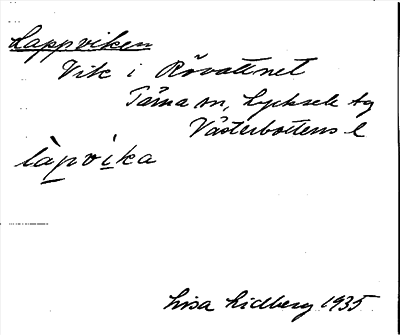 Lappviken
Vik i Rövattnet
Tärna sn, Lycksele tg
Västerbottens l
làpvìka
Lisa Lidberg 1935